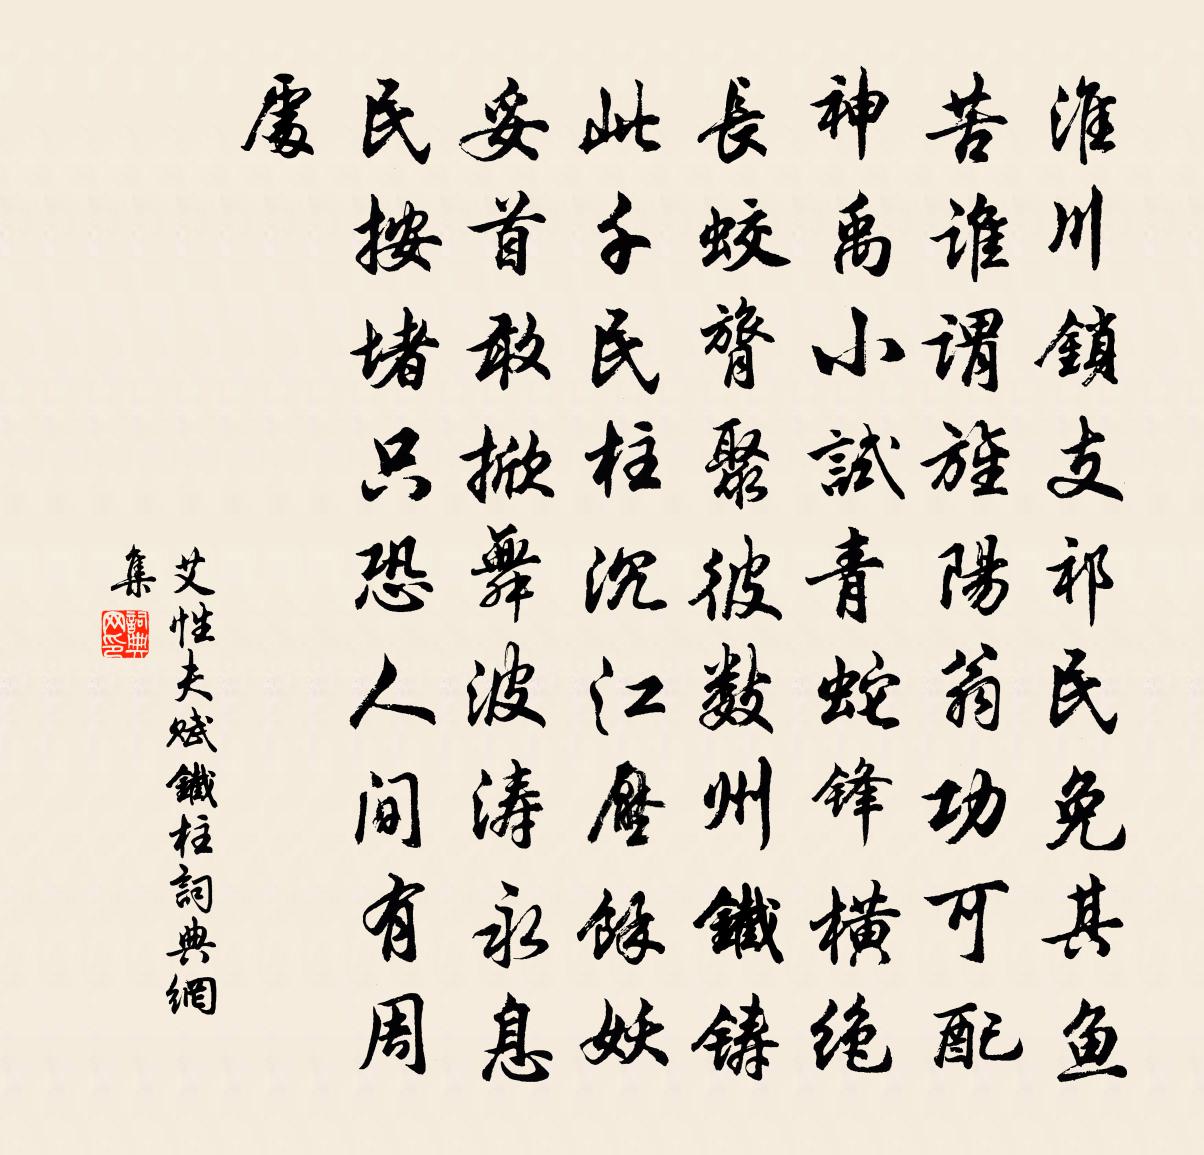 淮川鎖支祁民免其魚
苦誰謂旌陽翁功可配
神禹小試青蛇鋒橫絕
長蛟膂聚彼數州鐵鑄
此千民柱沉江壓餘妖
妥首敢掀舞波濤永息
民按堵只恐人間有周
處
艾性夫賦鐵柱詞典網
集
詞典網印